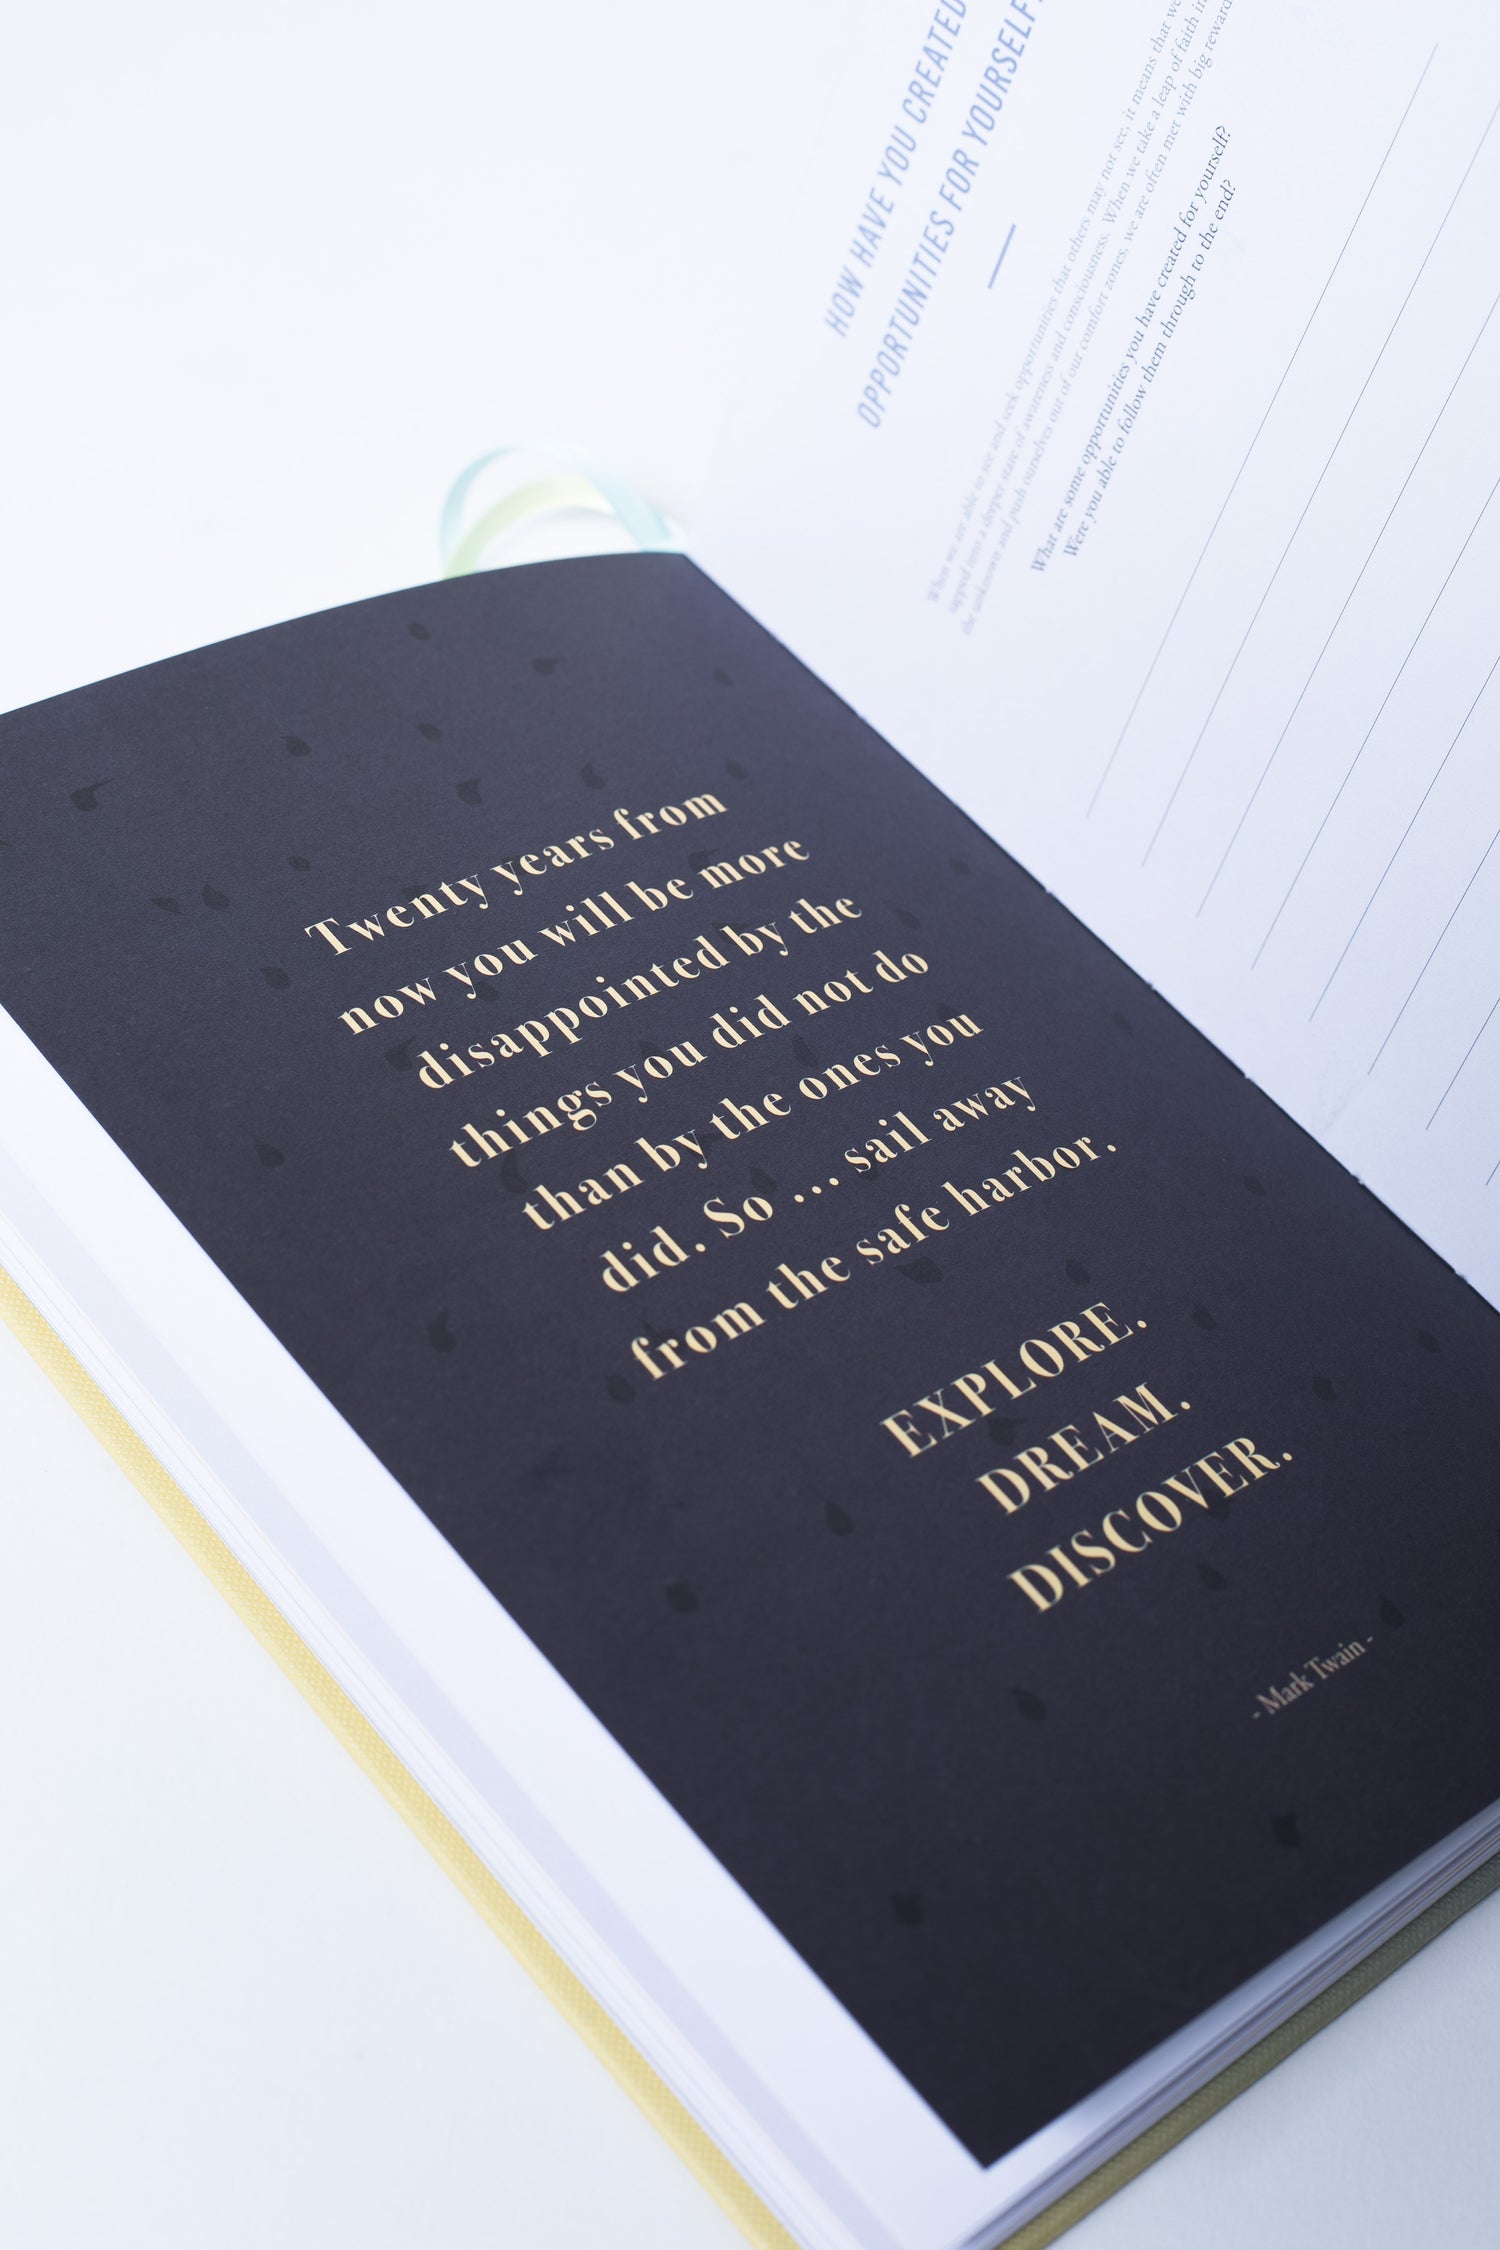 Twenty years from
now you will be more
disappointed by the
things you did not do
than by the ones you
did. So ... sail away
from the safe harbor.
EXPLORE.
DREAM.
DISCOVER.
- Mark Twain -
HOW HAVE YOU CREATED
OPPORTUNITIES FOR YOURSELF?
When we are able to see and seek opportunities that others may not see, it means that we
tapped into a deeper state of awareness and consciousness. When we take a leap of faith in
the unknown and push ourselves out of our comfort zones, we are often met with big reward
What are some opportunities you have created for yourself?
Were you able to follow them through to the end?